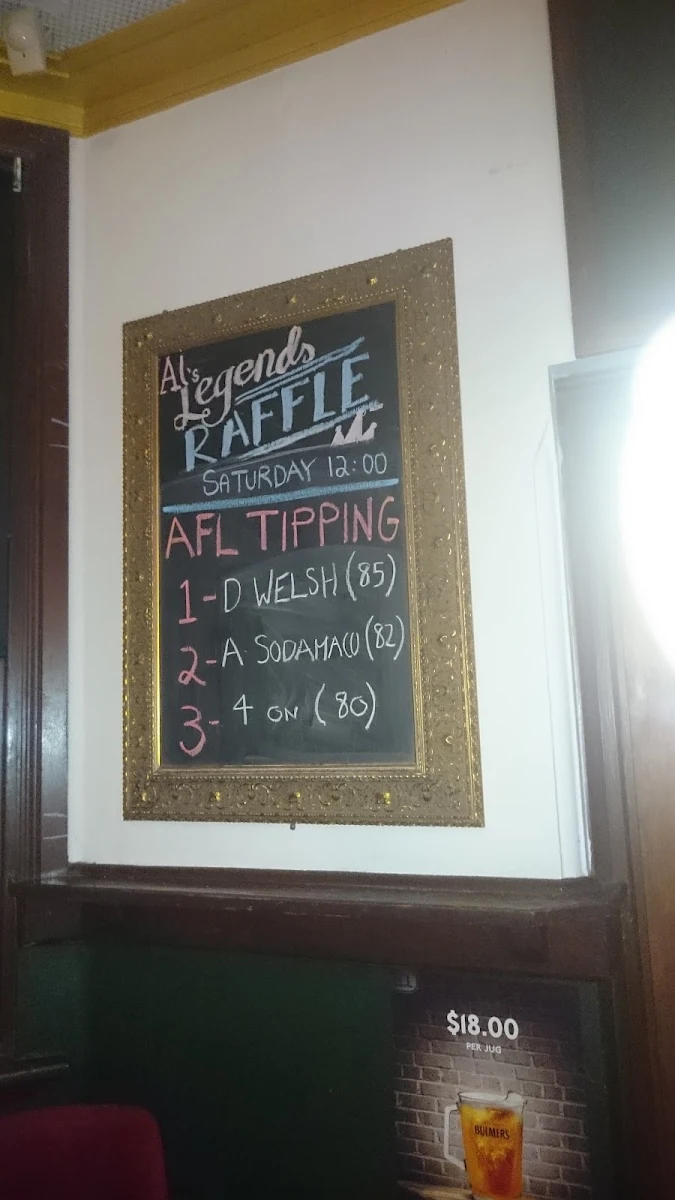 Al's
Legends
RAFFLE
SATURDAY 12:00
AFL TIPPING
1-D WELSH (85)
2-A SODAMACO (82)
3- 4 ON (80)
$18.00
PER JUG
BULMERS